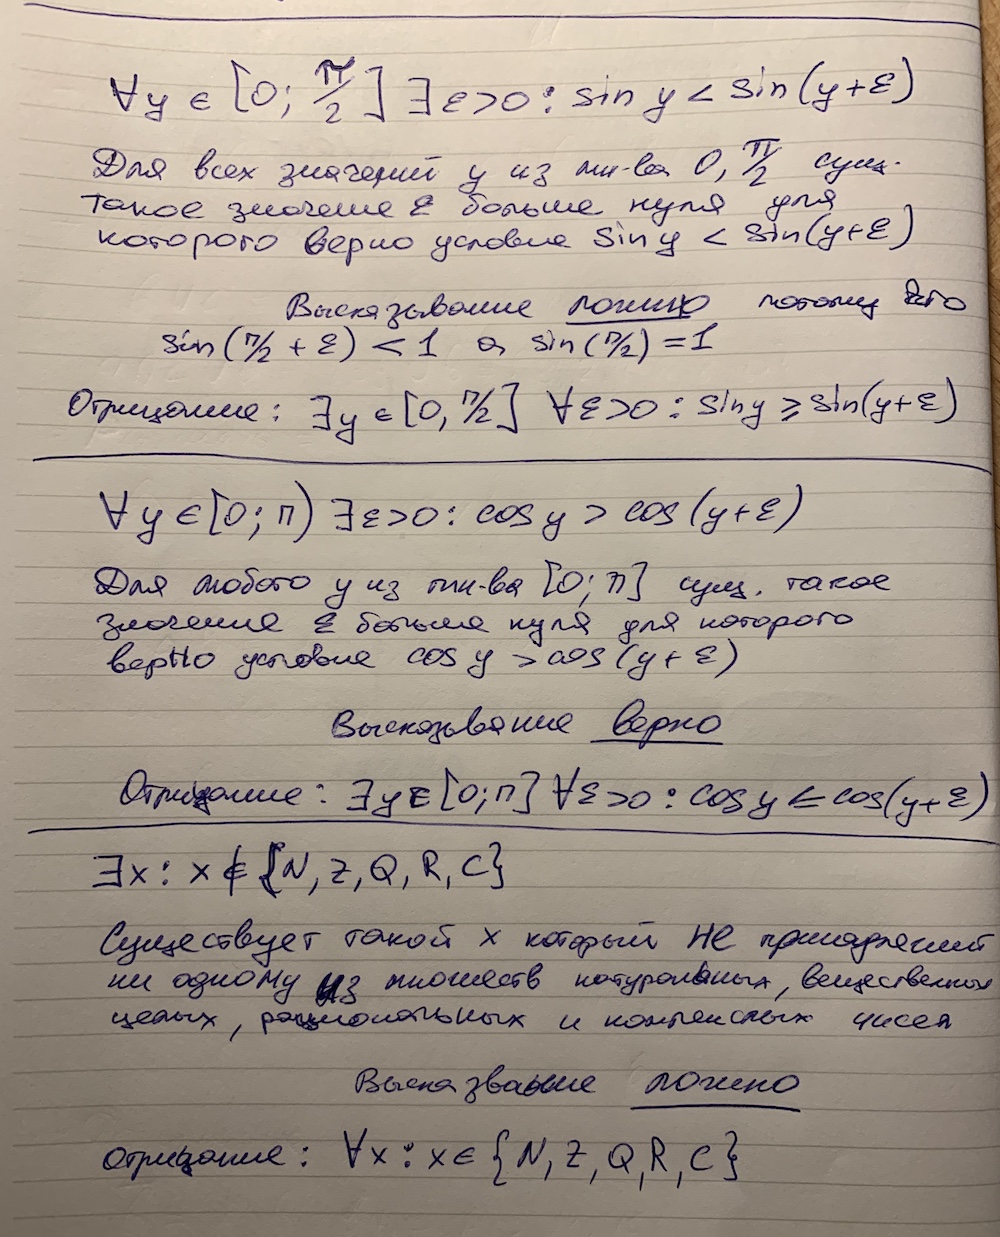 ∀y ∈ [0; π/2] ∃ε>0: sin y < sin(y+ε)
Для всех значений y из мн-ва 0, π/2 сущ.
такое значение ε больше нуля для
которого верно условие sin y < sin(y+ε)
Высказывание ложно потому что
sin(π/2 + ε) < 1 а sin(π/2) = 1
Отрицание: ∃y ∈ [0, π/2] ∀ε>0: sin y ≥ sin(y+ε)
∀y ∈ [0; π) ∃ε>0: cos y > cos(y+ε)
Для любого y из мн-ва [0; π] сущ. такое
значение ε больше нуля для которого
верно условие cos y > cos(y+ε)
Высказывание верно
Отрицание: ∃y ∈ [0; π] ∀ε>0: cos y ≤ cos(y+ε)
∃x: x ∉ {N, Z, Q, R, C}
Существует такой x который не принадлежит
ни одному из множеств натуральных, вещественных
целых, рациональных и комплексных чисел
Высказвание ложно
отрицание: ∀x: x ∈ {N, Z, Q, R, C}